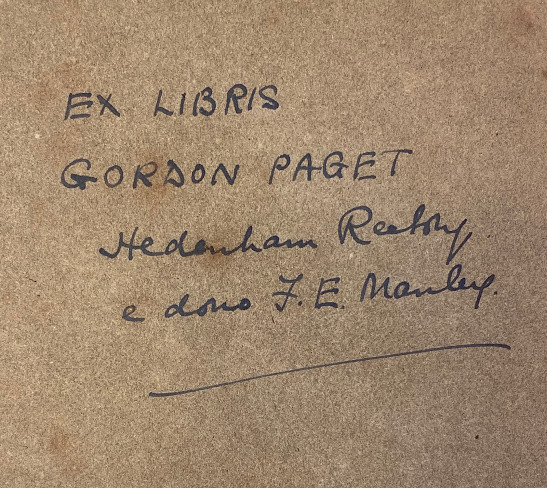 EX LIBRIS
GORDON PAGET
Hedenham Rectory
e dono F. E. Manley.